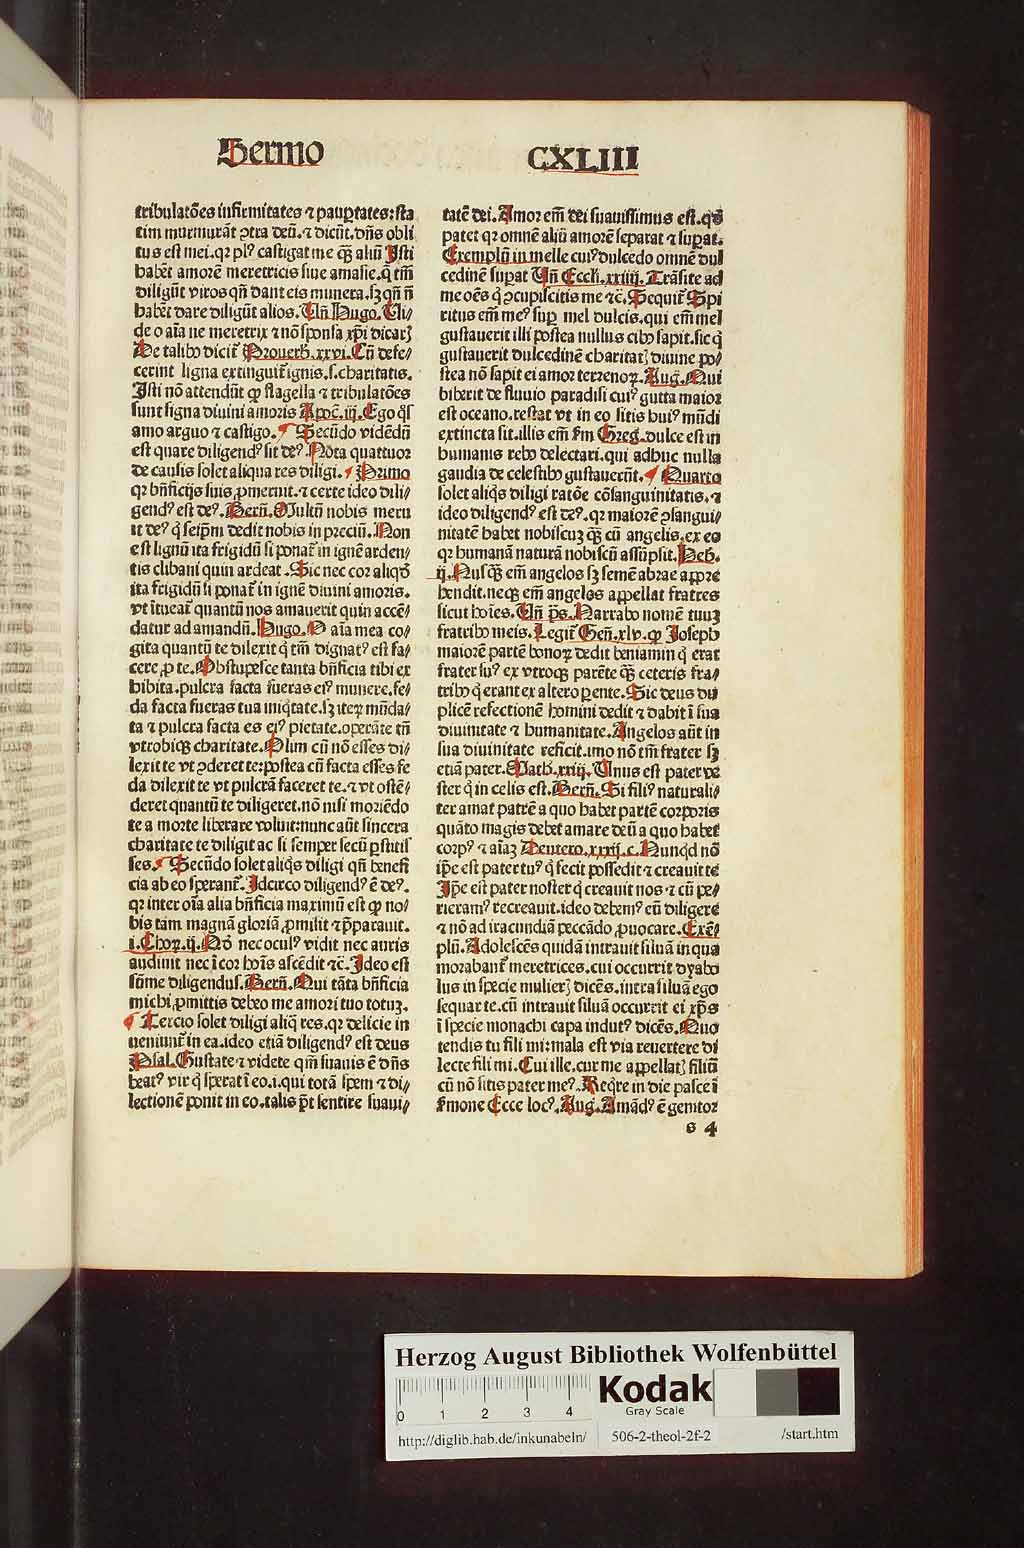 Sermo
CXLIII
tribulatões infirmitates ⁊ paup̱tates: sta
tim murmurãt ꝯtra deũ. ⁊ dicũt. dñs obli
tus est mei. qꝛ plꝰ castigat me q̃ꝫ aliũ Isti
habẽt amorẽ meretricis siue amasie. q̃ tm̃
diligũt viros qñ dant eis munera. sꝫ qñ nõ
habẽt dare diligũt alios. Uñ Hugo. Ui/
de o aĩa ne meretrix ⁊ nõ sponsa xp̃i dicarꝭ
De talibꝰ dicit᷑ Prouerb. xxvi. Cũ defe/
cerint ligna extinguit᷑ ignis. s. charitatis.
Isti nõ attendũt ꝙ flagella ⁊ tribulatões
sunt signa diuini amoris Apoc̃. iij. Ego q̃s
amo arguo ⁊ castigo. ¶ Secũdo vidẽdũ
est quare diligendꝰ sit deꝰ. Nõta quattuor
de causis solet aliqua res diligi. ¶ Primo
qꝛ bñficijs suis ꝓmeruit. ⁊ certe ideo dili/
gendꝰ est deꝰ. Berñ. Multũ nobis meru
it deꝰ q̇ seip̃m dedit nobis in preciũ. Non
est lignũ ita frigidũ si ponat᷑ in ignẽ arden/
tis clibani quin ardeat. Sic nec cor aliqḋ
ita frigidũ si ponat᷑ in ignẽ diuini amoris.
vt ĩtueat᷑ quantũ nos amauerit quin accẽ/
datur ad amandũ. Hugo. O aĩa mea co/
gita quantũ te dilexit q̇ tm̃ dignatꝰ est fa/
cere ꝓ te. Obstupesce tanta bñficia tibi ex
hibita. pulcra facta fueras eiꝰ munere. fe/
da facta fueras tua iniq̇tate. sꝫ iteꝝ mũda/
ta ⁊ pulcra facta es eiꝰ pietate. operãte tñ
vtrobiqꝫ charitate. Olim cũ nõ esses di/
lexit te vt ꝯderet te: postea cũ facta esses fe
da dilexit te vt pulcrã faceret te. ⁊ vt ostẽ/
deret quantũ te diligeret. nõ nisi moriẽdo
te a morte liberare voluit: nunc aũt sincera
charitate te diligit ac si semper secũ ꝑstitis
ses. ¶ Secũdo solet aliq̇s diligi qñ benefi
cia ab eo sperant᷑. Idcirco diligendꝰ ẽ deꝰ.
qꝛ inter oĩa alia bñficia maximũ est ꝙ no/
bis tam magnã gloriã ꝓmisit ⁊ p̃parauit.
i. Choꝝ. ij. Nõ nec oculꝰ vidit nec auris
audiuit nec ĩ cor hoĩs ascẽdit ⁊c̃. Ideo est
sũme diligendus. Berñ. Qui tãta bñficia
michi ꝓmittis debeo me amori tuo totuꝫ.
¶ Tercio solet diligi aliq̃ res. qꝛ delicie in
ueniunt᷑ in ea. ideo etiã diligendꝰ est deus
Psal. Gustate ⁊ videte qm̃ suauis ẽ dñs
beatꝰ vir q̇ sperat ĩ eo. i. qui totã spem ⁊ di/
lectionẽ ponit in eo. talis p̃t sentire suaui/
tatẽ dei. Amor em̃ dei suauissimus est. qḋ
patet qꝛ omnẽ aliũ amorẽ separat ⁊ suꝑat.
Exemplũ in melle cuiꝰ dulcedo omnẽ dul
cedinẽ suꝑat Uñ Eccli. xxiiij. Trãsite ad
me oẽs q̇ ꝯcupiscitis me ⁊c̃. Sequit᷑ Spi
ritus em̃ meꝰ suꝑ mel dulcis. qui em̃ mel
gustauerit illi postea nullus cibꝰ sapit. sic q̇
gustauerit dulcedinẽ charitatꝭ diuine po/
stea nõ sapit ei amor terrenoꝝ. Aug. Qui
biberit de fluuio paradisi cuiꝰ gutta maior
est oceano. restat vt in eo sitis huiꝰ mũdi
extincta sit. illis em̃ ẜm Greg. dulce est in
humanis rebꝰ delectari. qui adhuc nulla
gaudia de celestibꝰ gustauerũt. ¶ Quarto
solet aliq̇s diligi ratõe cõsanguinitatis. ⁊
ideo diligendꝰ est deꝰ. qꝛ maiorẽ ꝯsangui/
nitatẽ habet nobiscuꝫ q̃ꝫ cũ angelis. ex eo
qꝛ humanã naturã nobiscũ assũpsit. Heb.
ij. Nusq̃ꝫ em̃ angelos sꝫ semẽ abrae appre
hendit. neqꝫ em̃ angelos appellat fratres
sicut hoĩes. Uñ p̃s. Narrabo nomẽ tuuꝫ
fratribꝰ meis. Legit᷑ Geñ. xlv. ꝙ Joseph
maiorẽ partẽ bonoꝝ dedit beniamin q̇ erat
frater suꝰ ex vtroqꝫ parẽte q̃ꝫ ceteris fra/
tribꝰ q̇ erant ex altero ꝑente. Sic deus du
plicẽ refectionẽ homini dedit ⁊ dabit ĩ sua
diuinitate ⁊ humanitate. Angelos aũt in
sua diuinitate reficit. imo nõ tm̃ frater sꝫ
etiã pater. Math. xxiij. Unus est pater ve
ster q̇ in celis est. Berñ. Si filiꝰ naturali/
ter amat patrẽ a quo habet partẽ corporis
quãto magis debet amare deũ a quo habet
corpꝰ ⁊ aĩaꝫ Deutero. xxxij. c. Nunqḋ nõ
ip̃e est pater tuꝰ q̇ fecit possedit ⁊ creauit te
Ip̃e est pater noster q̇ creauit nos ⁊ cũ pe/
rieramꝰ recreauit. ideo debemꝰ eũ diligere
⁊ nõ ad iracundiã peccãdo ꝓuocare. Exẽ/
plũ. Adolescẽs quidã intrauit siluã in qua
morabant᷑ meretrices. cui occurrit dyabo
lus in specie mulierꝭ dicẽs. intra siluã ego
sequar te. cũ intrauit siluã occurrit ei xp̃s
ĩ specie monachi capa indutꝰ dicẽs. Quo
tendis tu fili mi: mala est via reuertere di
lecte fili mi. Cui ille. cur me appellatꝭ filiũ
cũ nõ sitis pater meꝰ. Req̇re in die pasce ĩ
ẜmone Ecce locꝰ. Aug. Amãdꝰ ẽ genitor
s 4
Herzog August Bibliothek Wolfenbüttel
0 1 2 3 4
Kodak
Gray Scale
http://diglib.hab.de/inkunabeln/ 506-2-theol-2f-2 /start.htm